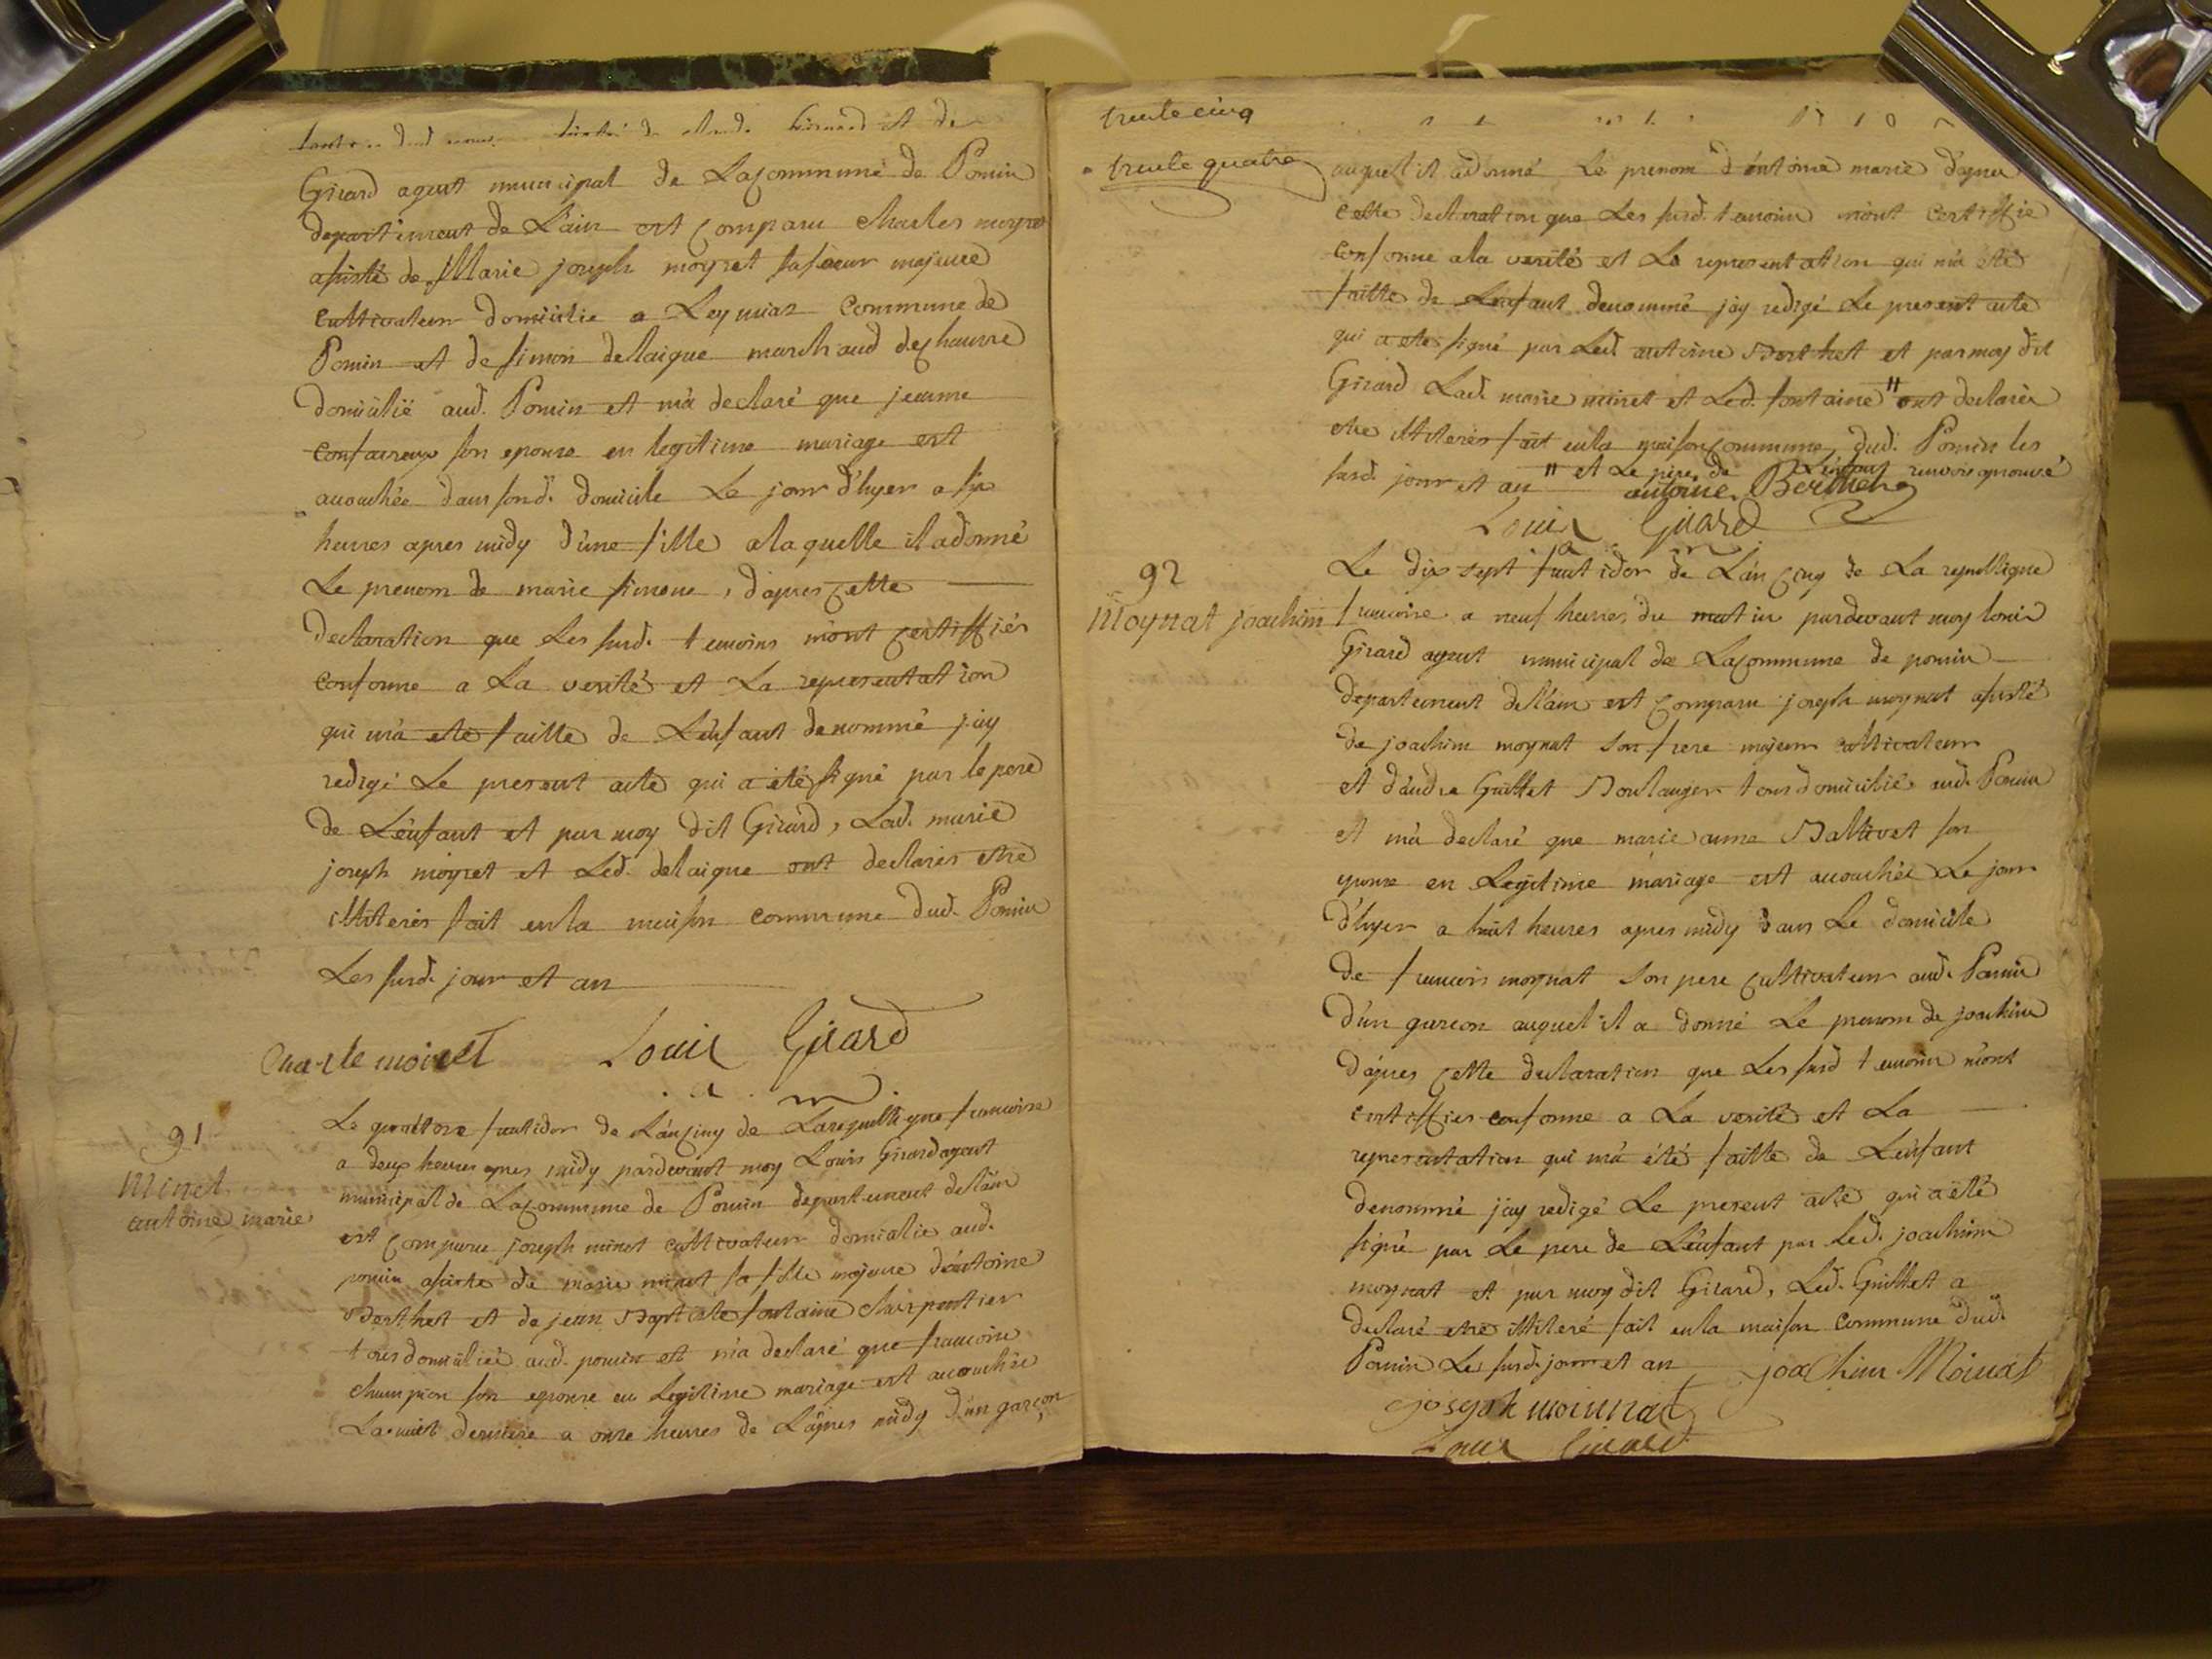 Girard agent municipal de Lacommune de Poncin
departement de L'ain est comparu charles moyret
asisté de Marie joseph moyret sasoeur majeure
cultivateur domicilié a Leymiaz Commune de
Poncin et de simon delaigue marchand de chanvre
domicilié aud. Poncin et m'a declaré que jeanne
son epouse en legitime mariage est
acouchée dans sond. domicile Le jour d'hyer a six
heures apres midy d'une fille alaquelle il adonné
Le prenom de marie simone, d'apres cette
declaration que Les susd. temoins mont certiffiés
conforme a La verité et La representation
qui m'a eté faitte de L'enfant denommé j'ay
redigé Le present acte qui a été signé par le pere
de L'enfant et par moy dit Girard, Lad. marie
joseph moyret et Led. delaigue ont declarés etre
illiterés fait enla maison commune dud. Poncin
Les susd. jour et an
Charle moiret Louis Girard
a. m.
91
Minet
antoine marie
Le quatorze fructidor de L'an cinq de Larepublique francoise
a deux heures apres midy pardevant moy Louis Girard agent
municipal de Lacommune de Poncin departement de l'ain
est comparu joseph minet cultivateur domicilié aud.
poncin asisté de marie minet sa fille majeure d'antoine
Berthet et de jean Baptiste fontaine charpentier
tous domiciliés aud. poncin et m'a declaré que francoise
champion son epouse en Legitime mariage est acouchée
La nuit derniere a onze heures de L'apres midy d'un garçon
trente cinq
trente quatre
auquel il adonné Le prenom d'antoine marie d'apres
cette declaration que Les susd. temoins m'ont certiffié
conforme ala verité et La representation qui m'a eté
faitte de L'enfant denommé j'ay redigé Le present acte
qui a eté signé par Led. antoine Berthet et par moy dit
Girard Lad. marie minet et Led. fontaine " ont declarés
etre illiterés fait enla maison commune dud. Poncin les
susd. jour et an " et Le pere de L'enfant renvoi aprouvé
antoine Berthet
Louis Girard
a. m.
92
Moynat joachim
Le dix sept fructidor de L'an cinq de La republique
francoise a neuf heures du matin pardevant moy louis
Girard agent municipal de Lacommune de poncin
departement de l'ain est comparu joseph moynat asisté
de joachim moynat son frere majeur cultivateur
et d'andre Guillet Boulanger tous domicilié aud. Poncin
et m'a declaré que marie anne Ballivet son
epouse en Legitime mariage est acouchée Le jour
d'hyer a huit heures apres midy dans Le domicile
de francois moynat son pere cultivateur aud. Poncin
d'un garcon auquel il a donné Le prenom de joachim
d'apres cette declaration que Les susd temoins m'ont
certiffiés conforme a La verité et La
representation qui m'a été faitte de L'enfant
denommé j'ay redigé Le present acte qui a été
signé par Le pere de L'enfant par Led. joachim
moynat et par moy dit Girard, Led. Guillet a
declaré etre illiteré fait enla maison commune dud.
Poncin Les susd. jour et an joachim Moinat
joseph moinnat
Louis Girard